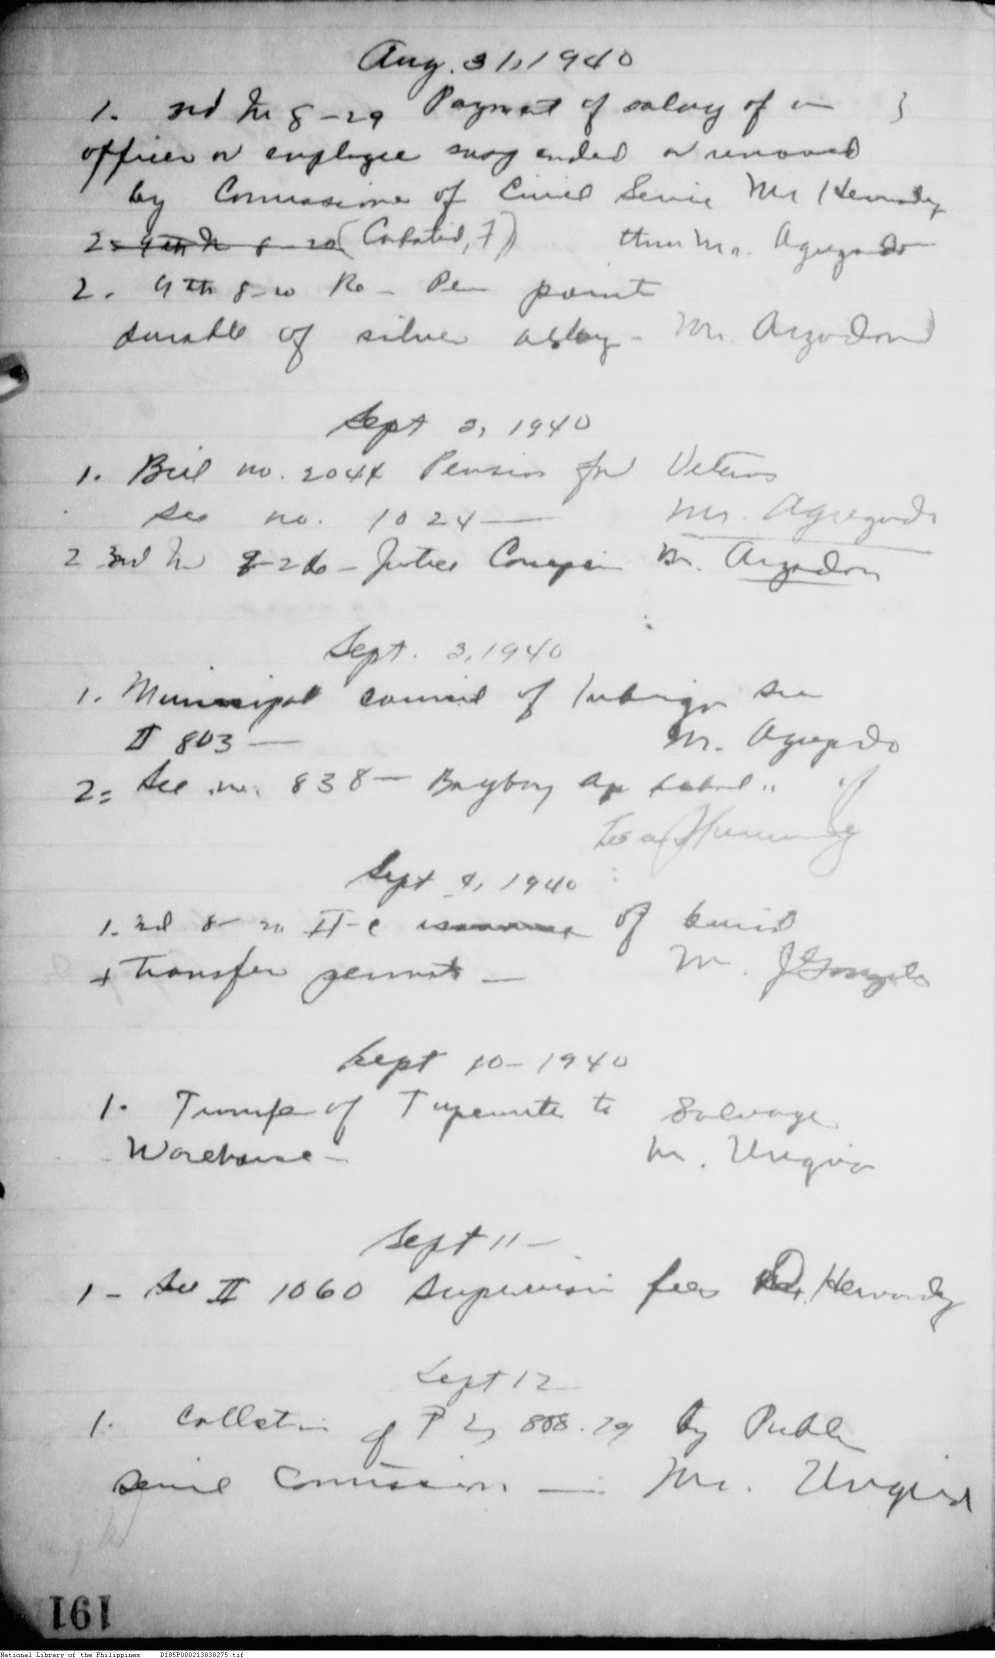 Aug. 31, 1940
1. 3rd In 8-29 Payment of salary of an
officer or employee suspended or removed
by Commissioner of Civil Service Mr Hernandez
2. 4th In 8-20 (Cabatid, F) thru Mr. Agregado
2. 4th 8-20 Re- Pen point
durable of silver alloy - Mr. Argodon
Sept 3, 1940
1. Bill no. 2044 Pension for Veterans
see no. 1024 — Mr. Agregado
2 3rd In 8-26 - Justice Mr. Argodon
Sept. 3, 1940
1. Municipal council of see
II 803 — Mr. Agregado
2. See no. 838 —
Sept 9, 1940
1. 3rd 8- II-C issuance of
+ transfer permits — Mr. J Gonzales
Sept 10-1940
1. Transfer of Typewriter to Salvage
Warehouse - Mr. Ungria
Sept 11 -
1 - See II 1060 Supervision fees Hernandez
Sept 12
1. Collection of P 2, 888.29 by Public
Service Commission — Mr. Ungria
191
National Library of the Philippines D185P000213838275.tif